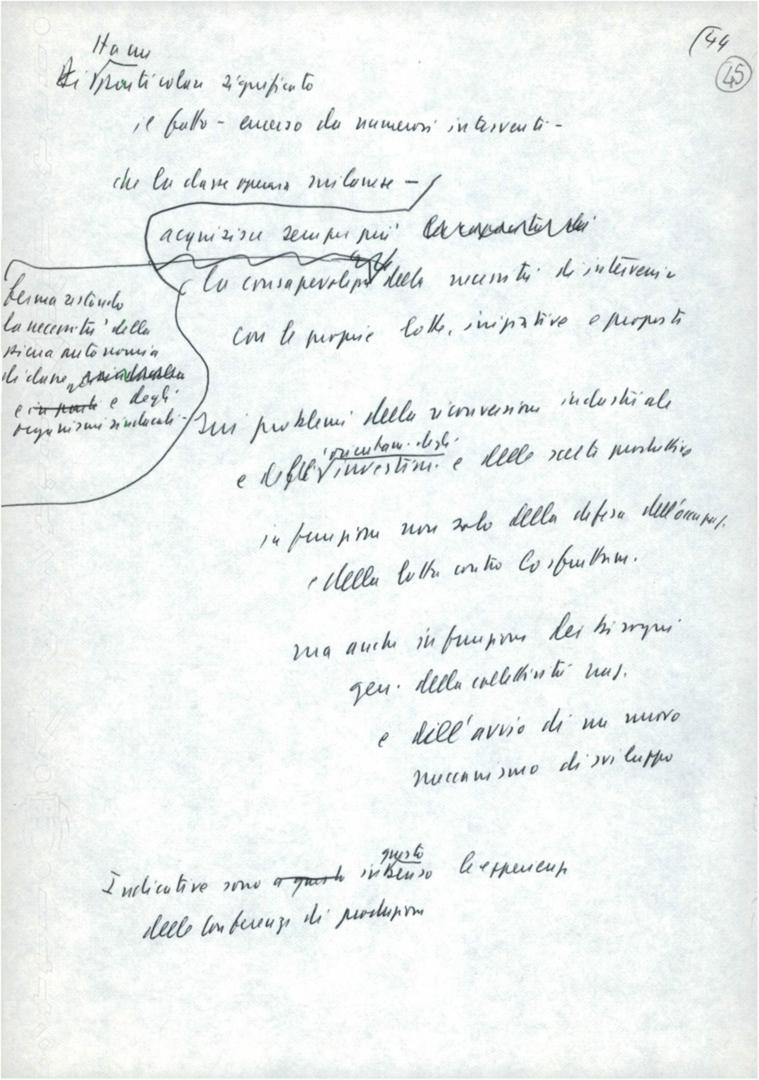 44
45
Ha un
Di particolare significato
è il fatto - emerso da numerosi interventi -
che la classe operaia milanese -
acquisisce sempre più
la consapevolezza della necessità di intervenire
con le proprie lotte, iniziative e proposte
riaffermando
la necessità della
piena autonomia
di classe
e in parte e degli
organismi sindacali -
sui problemi della riconversione industriale
orientam. degli
e degli investim. e delle scelte produttive
in funzione non solo della difesa dell'occupaz.
e della lotta contro lo sfruttam.
ma anche in funzione dei bisogni
gen. della collettività naz.
e dell'avvio di un nuovo
meccanismo di sviluppo
questo
Indicative sono a questo in senso le esperienze
delle Conferenze di produzione